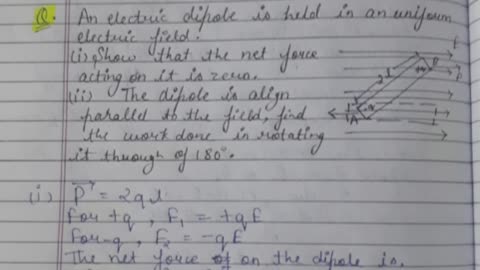 Q. An electric dipole is held in an uniform
electric field.
(i) Show that the net force
acting on it is zero.
(ii) The dipole is align
parallel to the field, find
the work done in rotating
it through of 180°.
(i) P = 2ql
For +q, F1 = +qE
For -q, F2 = -qE
The net force of on the dipole is.